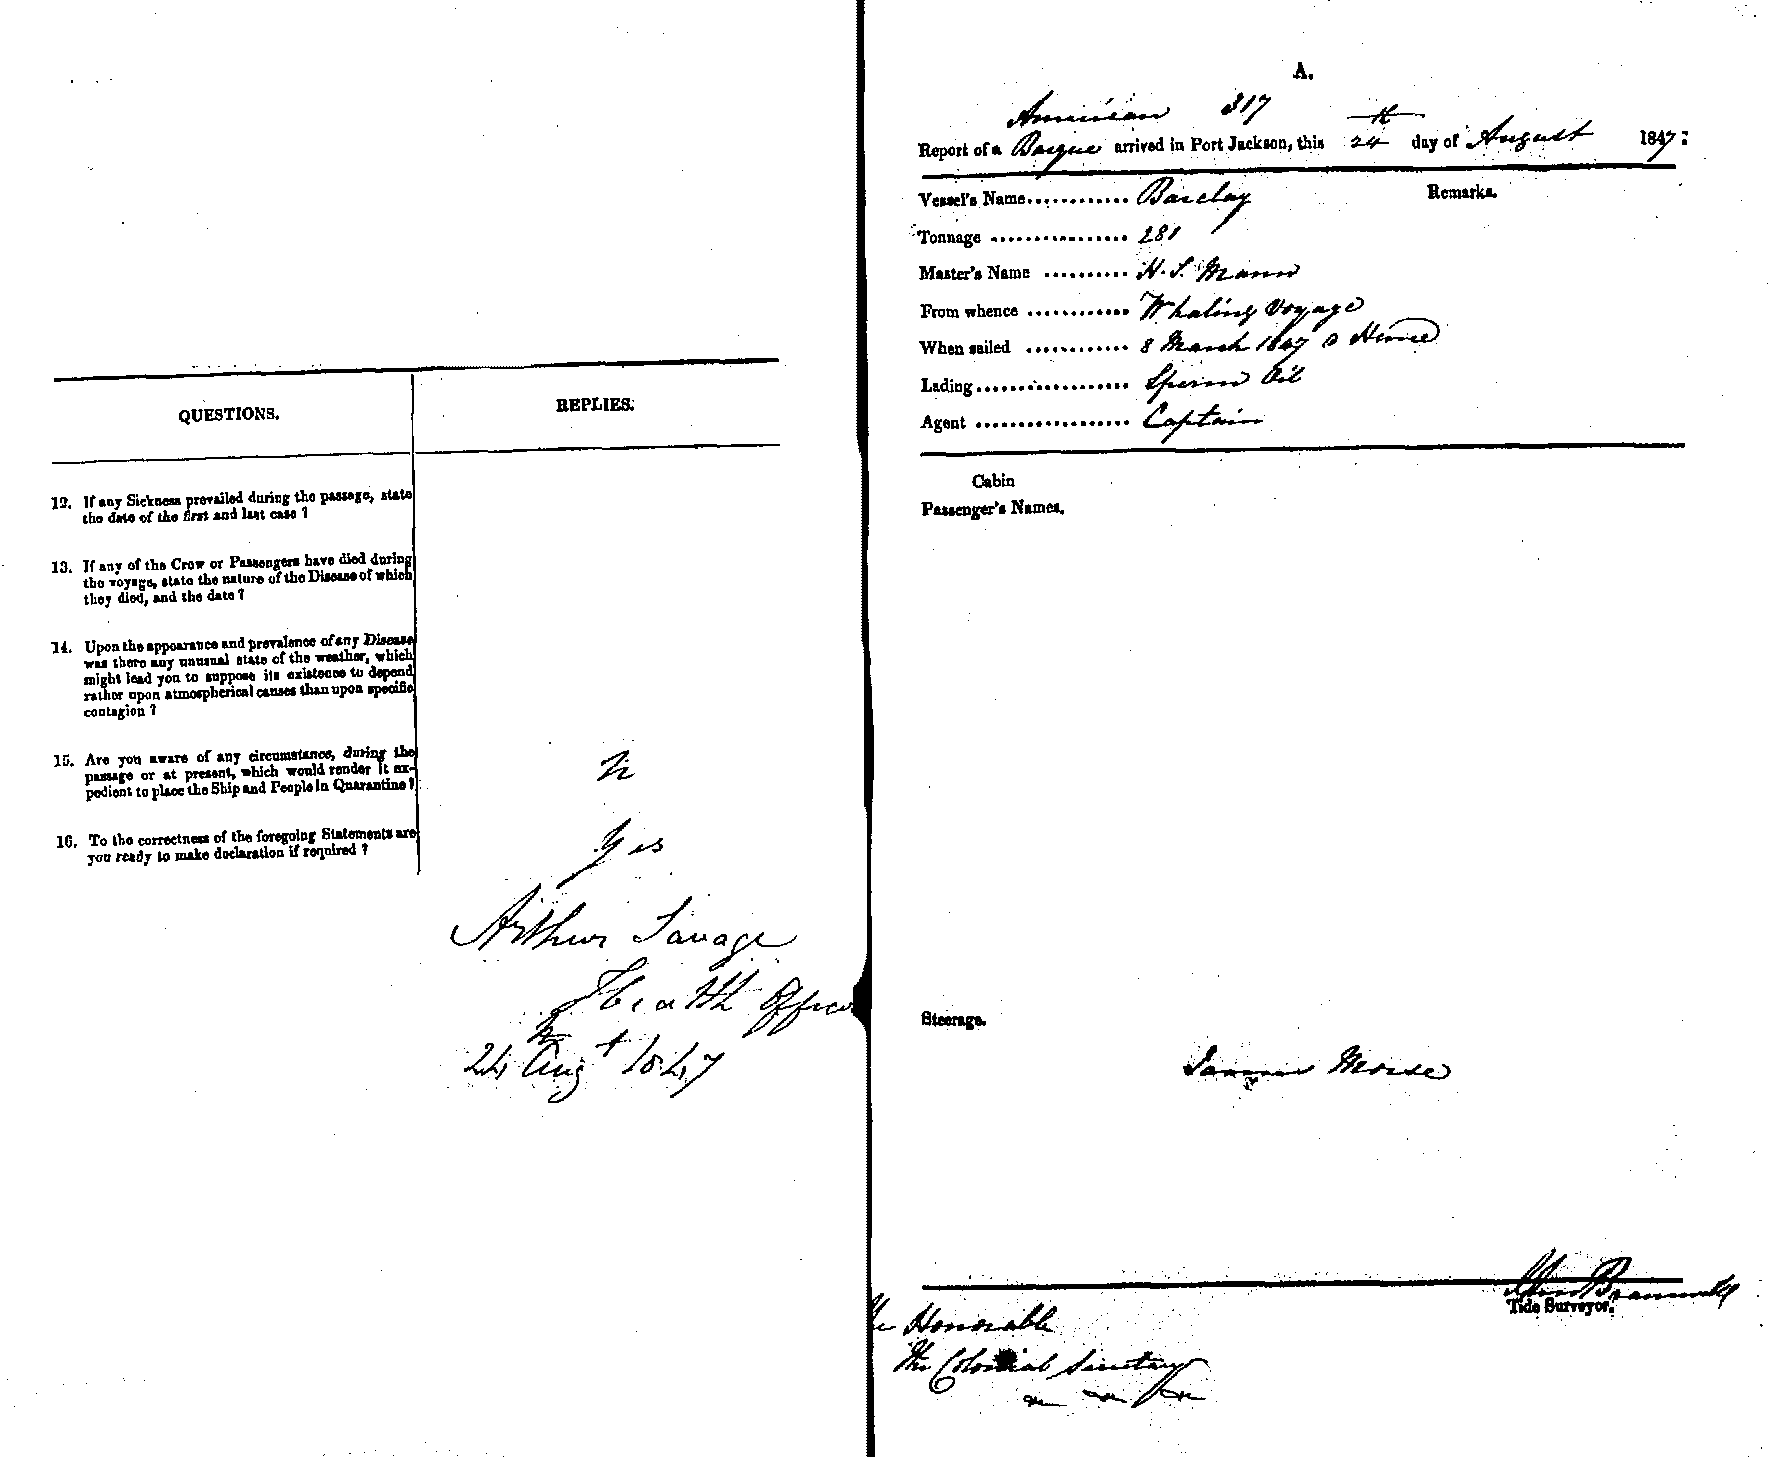 QUESTIONS.
REPLIES.
12. If any Sickness prevailed during the passage, state
the date of the first and last case ?
13. If any of the Crew or Passengers have died during
the voyage, state the nature of the Disease of which
they died, and the date ?
14. Upon the appearance and prevalence of any Disease
was there any unusual state of the weather, which
might lead you to suppose its existence to depend
rather upon atmospherical causes than upon specific
contagion ?
15. Are you aware of any circumstance, during the
passage or at present, which would render it ex-
pedient to place the Ship and People in Quarantine ?
16. To the correctness of the foregoing Statements are
you ready to make declaration if required ?
Yes
Arthur Savage
Health Officer
24 Augt 1847
A.
American 317
Report of a Barque arrived in Port Jackson, this 24th day of August 1847:
Vessel's Name............ Barclay
Remarks.
Tonnage ................ 281
Master's Name .......... H. S. Mann
From whence ............ Whaling Voyage
When sailed ............ 8 March 1847
Lading.................. Sperm Oil
Agent .................. Captain
Cabin
Passenger's Names.
Steerage.
Morse
John Bramwell
Tide Surveyor.
The Honorable
The Colonial Secretary